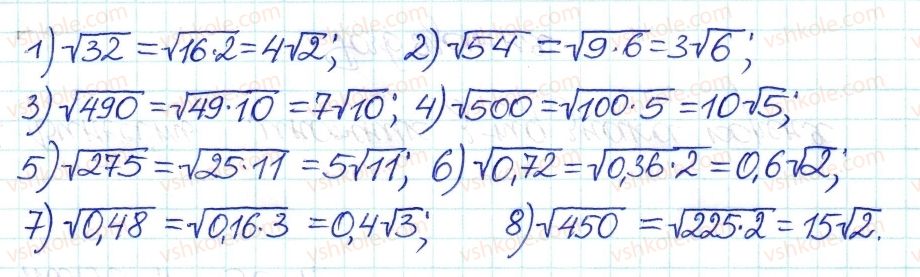 1) √32 = √16·2 = 4√2; 2) √54 = √9·6 = 3√6;
3) √490 = √49·10 = 7√10; 4) √500 = √100·5 = 10√5;
5) √275 = √25·11 = 5√11; 6) √0,72 = √0,36·2 = 0,6√2;
7) √0,48 = √0,16·3 = 0,4√3; 8) √450 = √225·2 = 15√2.